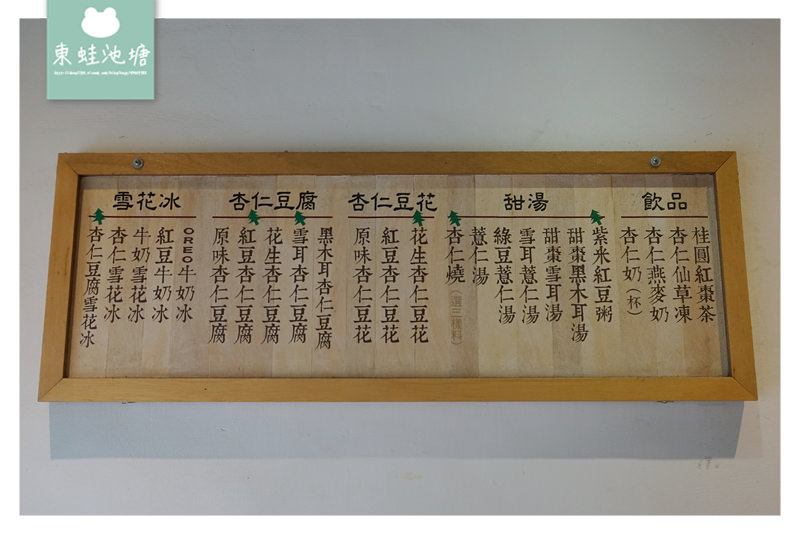 東蛙池塘
飲品
桂圓紅棗茶
杏仁仙草凍
杏仁燕麥奶
杏仁奶(杯)
甜湯
紫米紅豆粥
甜棗黑木耳湯
甜棗雪耳湯
雪耳薏仁湯
綠豆薏仁湯
薏仁湯
杏仁燒(選三樣料)
杏仁豆花
花生杏仁豆花
紅豆杏仁豆花
原味杏仁豆花
杏仁豆腐
黑木耳杏仁豆腐
雪耳杏仁豆腐
花生杏仁豆腐
紅豆杏仁豆腐
原味杏仁豆腐
雪花冰
OREO牛奶冰
紅豆牛奶冰
牛奶雪花冰
杏仁雪花冰
杏仁豆腐雪花冰